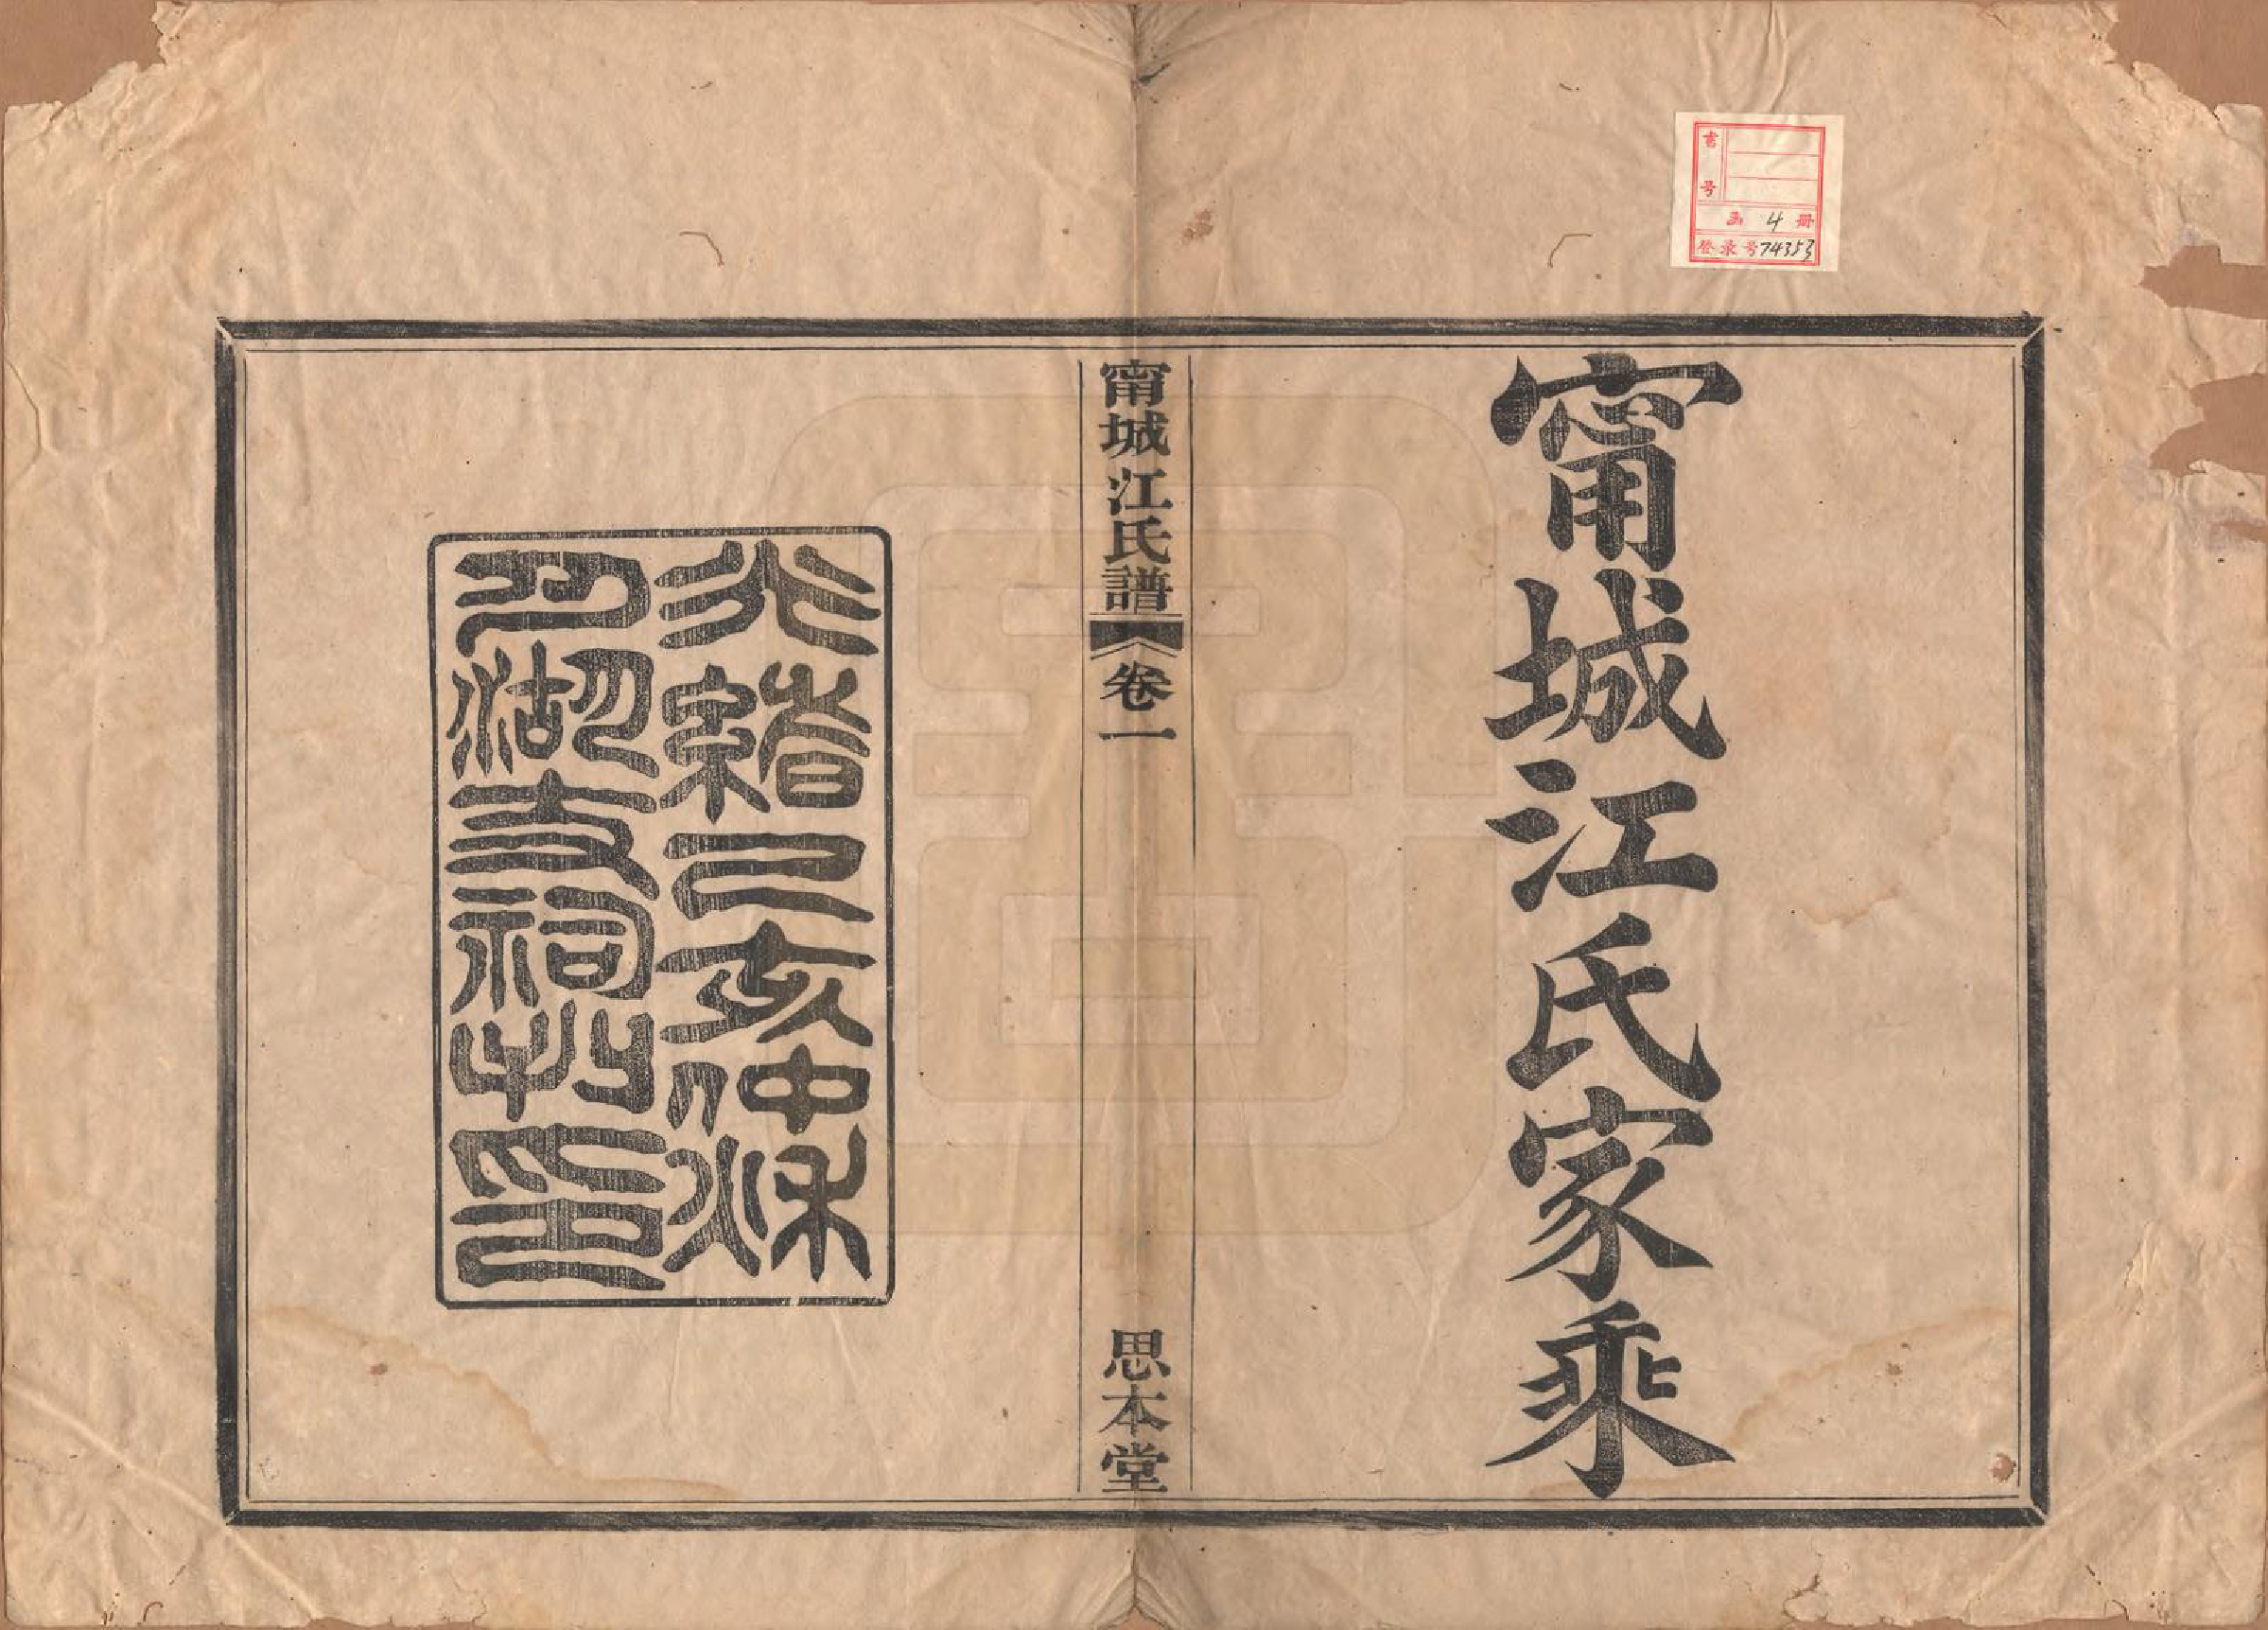 書号
函 4 册
登录号74353
甯城江氏家乘
甯城江氏譜 卷一 思本堂
光緒己亥仲秋
月湖支祠刊印